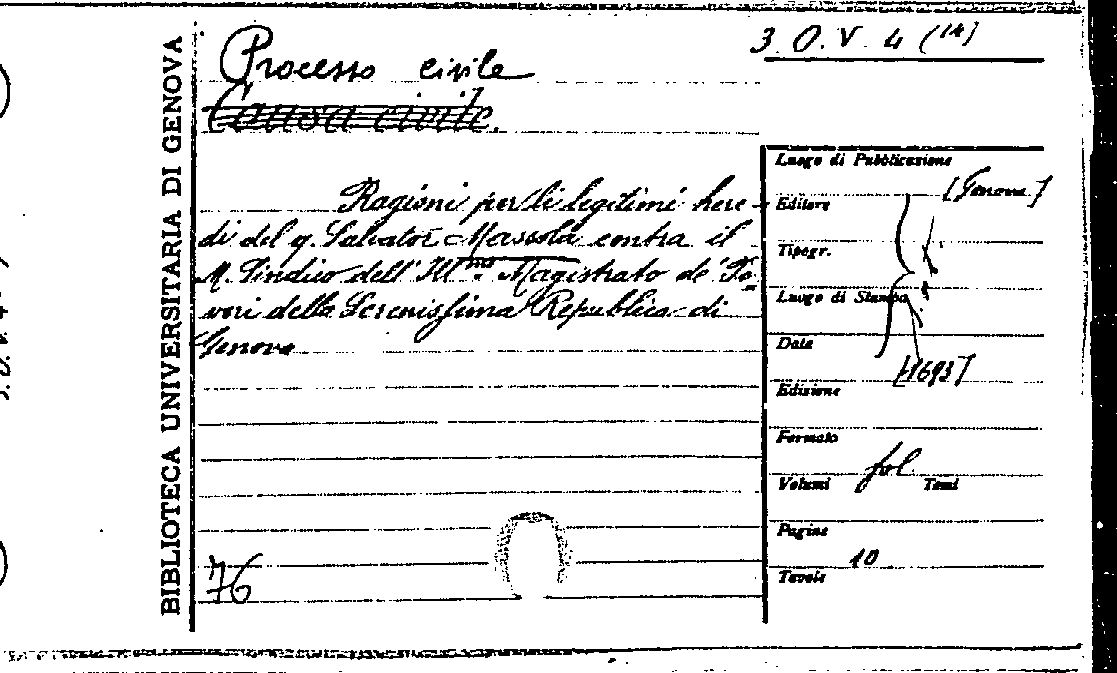 BIBLIOTECA UNIVERSITARIA DI GENOVA
3 O. V. 4 (14)
Processo civile
Causa civile.
Ragioni per li legitimi here-
di del q. Salvator Massola contra il
M. Sindico dell' Ill.mo Magistrato de' Po-
veri della Serenissima Republica di
Genova
76
Luogo di Pubblicazione
[Genova]
Editore
Tipogr.
Luogo di Stampa
Data
[1693]
Edizione
Formato
fol.
Volumi Tomi
Pagine
10
Tavole